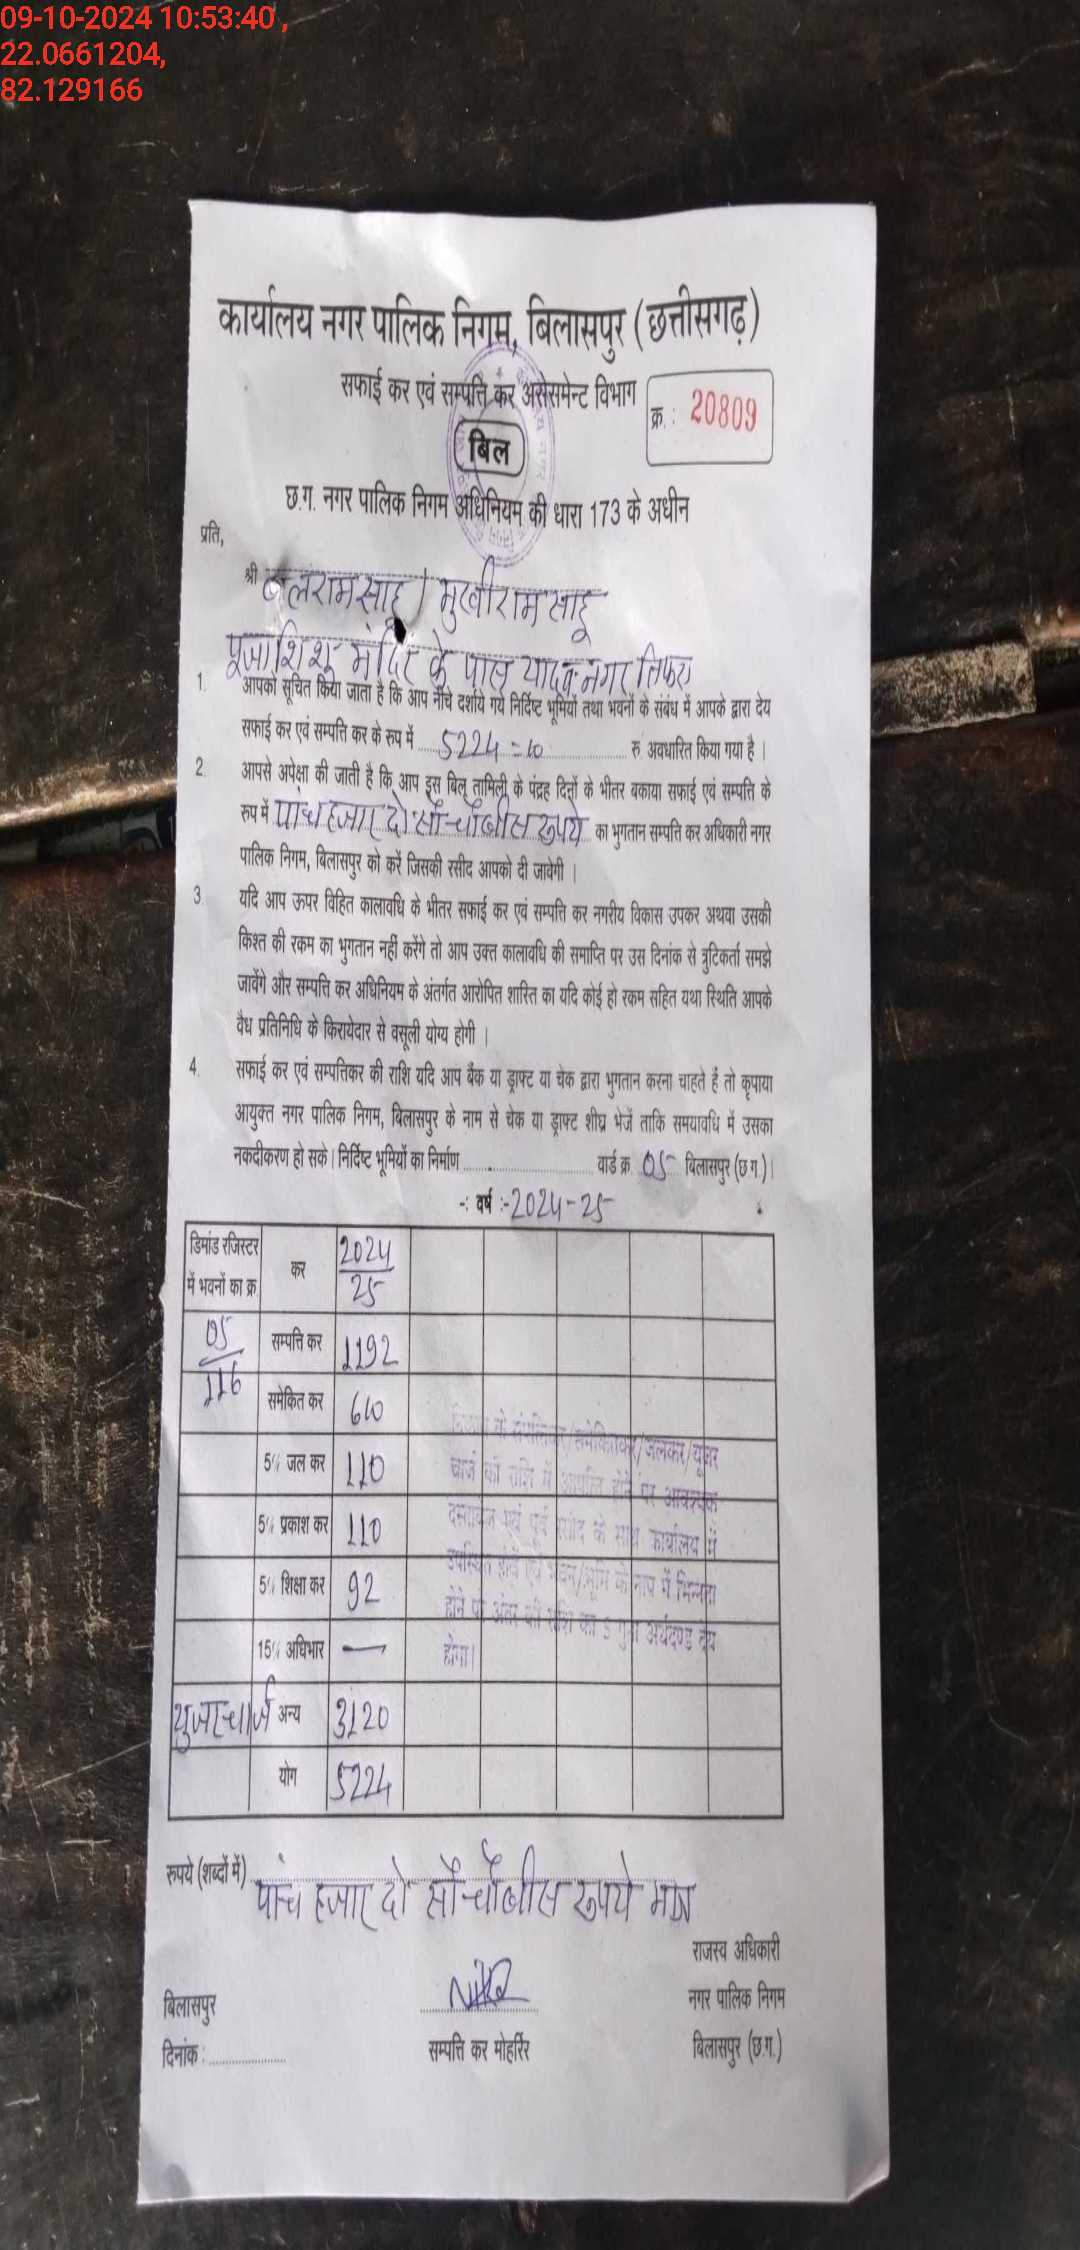 09-10-2024 10:53:40 ,
22.0661204,
82.129166
कार्यालय नगर पालिक निगम, बिलासपुर (छत्तीसगढ़)
सफाई कर एवं सम्पत्ति कर असेसमेन्ट विभाग
क्र.: 20809
बिल
छ.ग. नगर पालिक निगम अधिनियम की धारा 173 के अधीन
प्रति,
श्री बलराम साहू / मुखीराम साहू
पूजा शिशु मंदिर के पास यादव नगर तिफरा
1. आपको सूचित किया जाता है कि आप नीचे दर्शाये गये निर्दिष्ट भूमियों तथा भवनों के संबंध में आपके द्वारा देय
सफाई कर एवं सम्पत्ति कर के रुप में 5224=10 रु अवधारित किया गया है।
2. आपसे अपेक्षा की जाती है कि आप इस बिल तामिली के पंद्रह दिनों के भीतर बकाया सफाई एवं सम्पति के
रुप में पांच हजार दो सौ चौबीस रुपये का भुगतान सम्पत्ति कर अधिकारी नगर
पालिक निगम, बिलासपुर को करें जिसकी रसीद आपको दी जावेगी।
3. यदि आप ऊपर विहित कालावधि के भीतर सफाई कर एवं सम्पत्ति कर नगरीय विकास उपकर अथवा उसकी
किश्त की रकम का भुगतान नहीं करेंगे तो आप उक्त कालावधि की समाप्ति पर उस दिनांक से त्रुटिकर्ता समझे
जावेंगे और सम्पत्ति कर अधिनियम के अंतर्गत आरोपित शास्ति का यदि कोई हो रकम सहित यथा स्थिति आपके
वैध प्रतिनिधि के किरायेदार से वसूली योग्य होगी।
4. सफाई कर एवं सम्पत्तिकर की राशि यदि आप बैंक या ड्राफ्ट या चेक द्वारा भुगतान करना चाहते हैं तो कृपाया
आयुक्त नगर पालिक निगम, बिलासपुर के नाम से चेक या ड्राफ्ट शीघ्र भेजें ताकि समयावधि में उसका
नकदीकरण हो सके। निर्दिष्ट भूमियों का निर्माण वार्ड क्र. 05 बिलासपुर (छ.ग.)।
-: वर्ष :- 2024-25
डिमांड रजिस्टर में भवनों का क्र. कर 2024/25
05/116 सम्पत्ति कर 1192
समेकित कर 610
5% जल कर 110
5% प्रकाश कर 110
5% शिक्षा कर 92
15% अधिभार —
युजर चार्ज अन्य 3120
योग 5224
संपत्तिकर/समेकितकर/जलकर/यूजर
चार्ज की राशि में आपत्ति होने पर आवश्यक
दस्तावेज एवं पूर्व रसीद के साथ कार्यालय में
उपस्थित होवें एवं भवन/भूमि के नाप में भिन्नता
होने पर अंतर की राशि का 5 गुना अर्थदण्ड देय
होगा।
रुपये (शब्दों में) पांच हजार दो सौ चौबीस रुपये मात्र
राजस्व अधिकारी
बिलासपुर नगर पालिक निगम
दिनांक : सम्पत्ति कर मोहर्रिर बिलासपुर (छ.ग.)